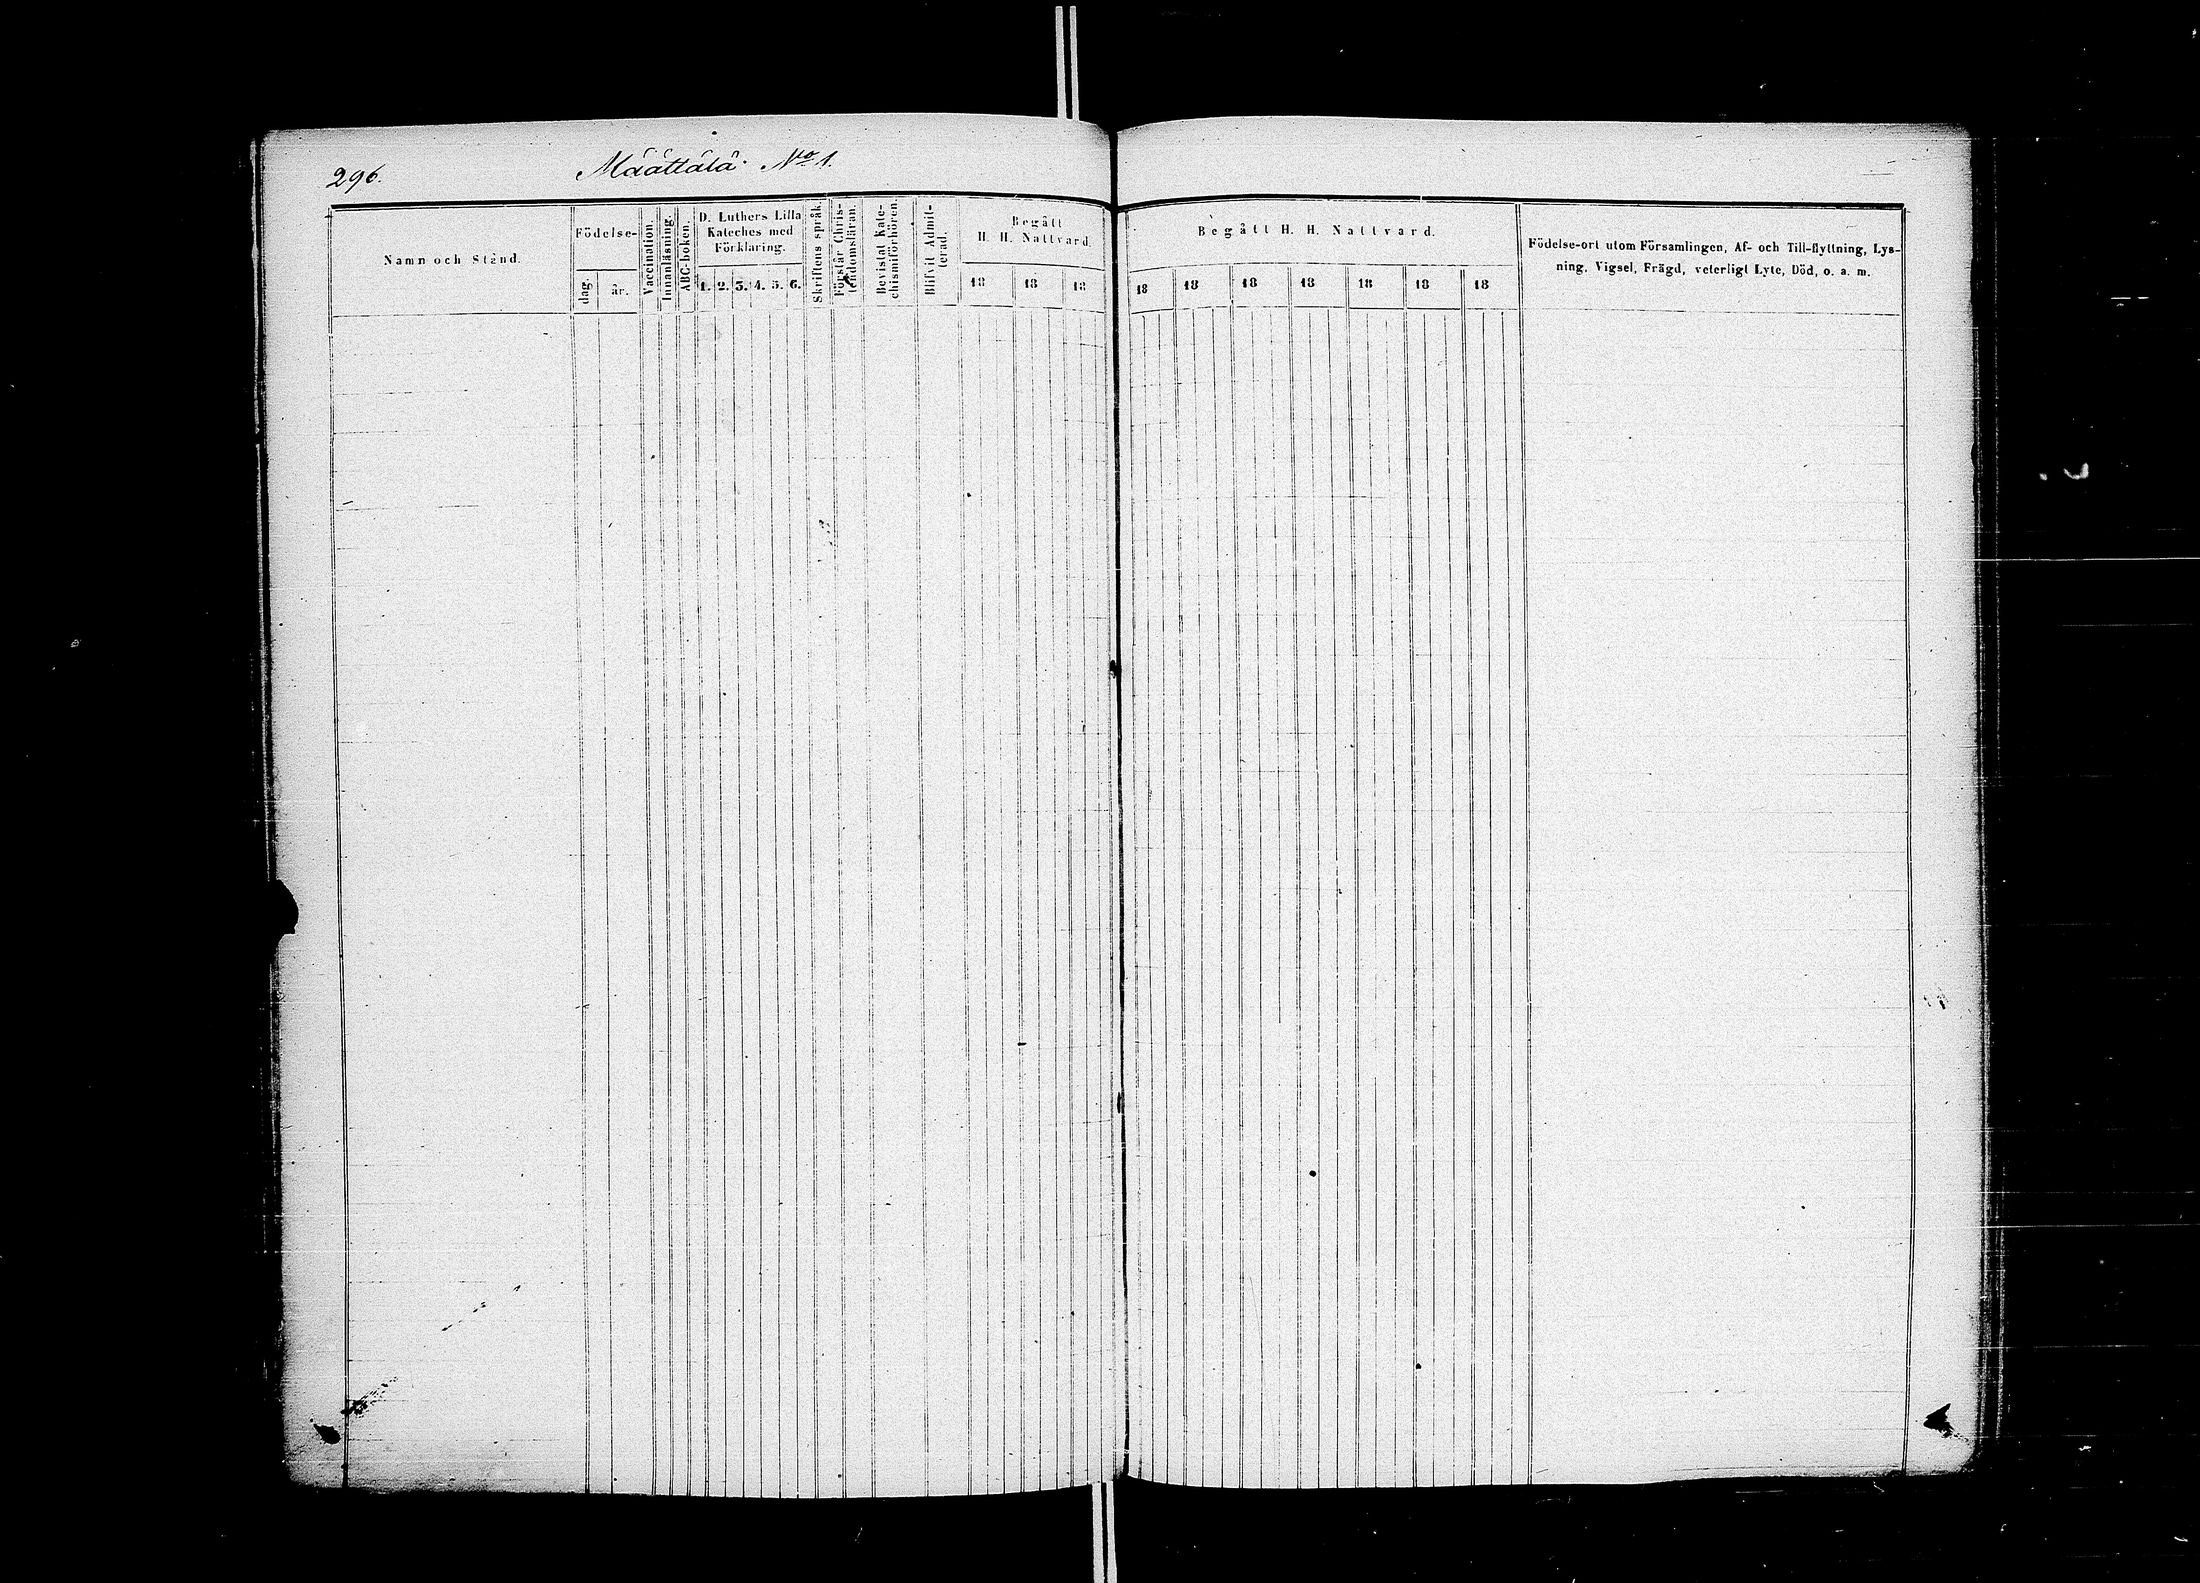 296.
Määttälä. No 1.
Namn och Stånd.
Födelse-
dag.
år.
Vaccination.
Innanläsning.
ABC-boken.
D. Luthers Lilla
Kateches med
Förklaring.
1. 2. 3. 4. 5. 6.
Skriftens språk.
Förstår Chris-
tendomsläran.
Bevistat Kate-
chismiförhören.
Blifvit Admit-
terad.
Begått
H. H. Nattvard.
18 18 18
Begått H. H. Nattvard.
18 18 18 18 18 18 18
Födelse-ort utom Församlingen, Af- och Till-flyttning, Lys-
ning, Vigsel, Frägd, veterligt Lyte, Död, o. a. m.